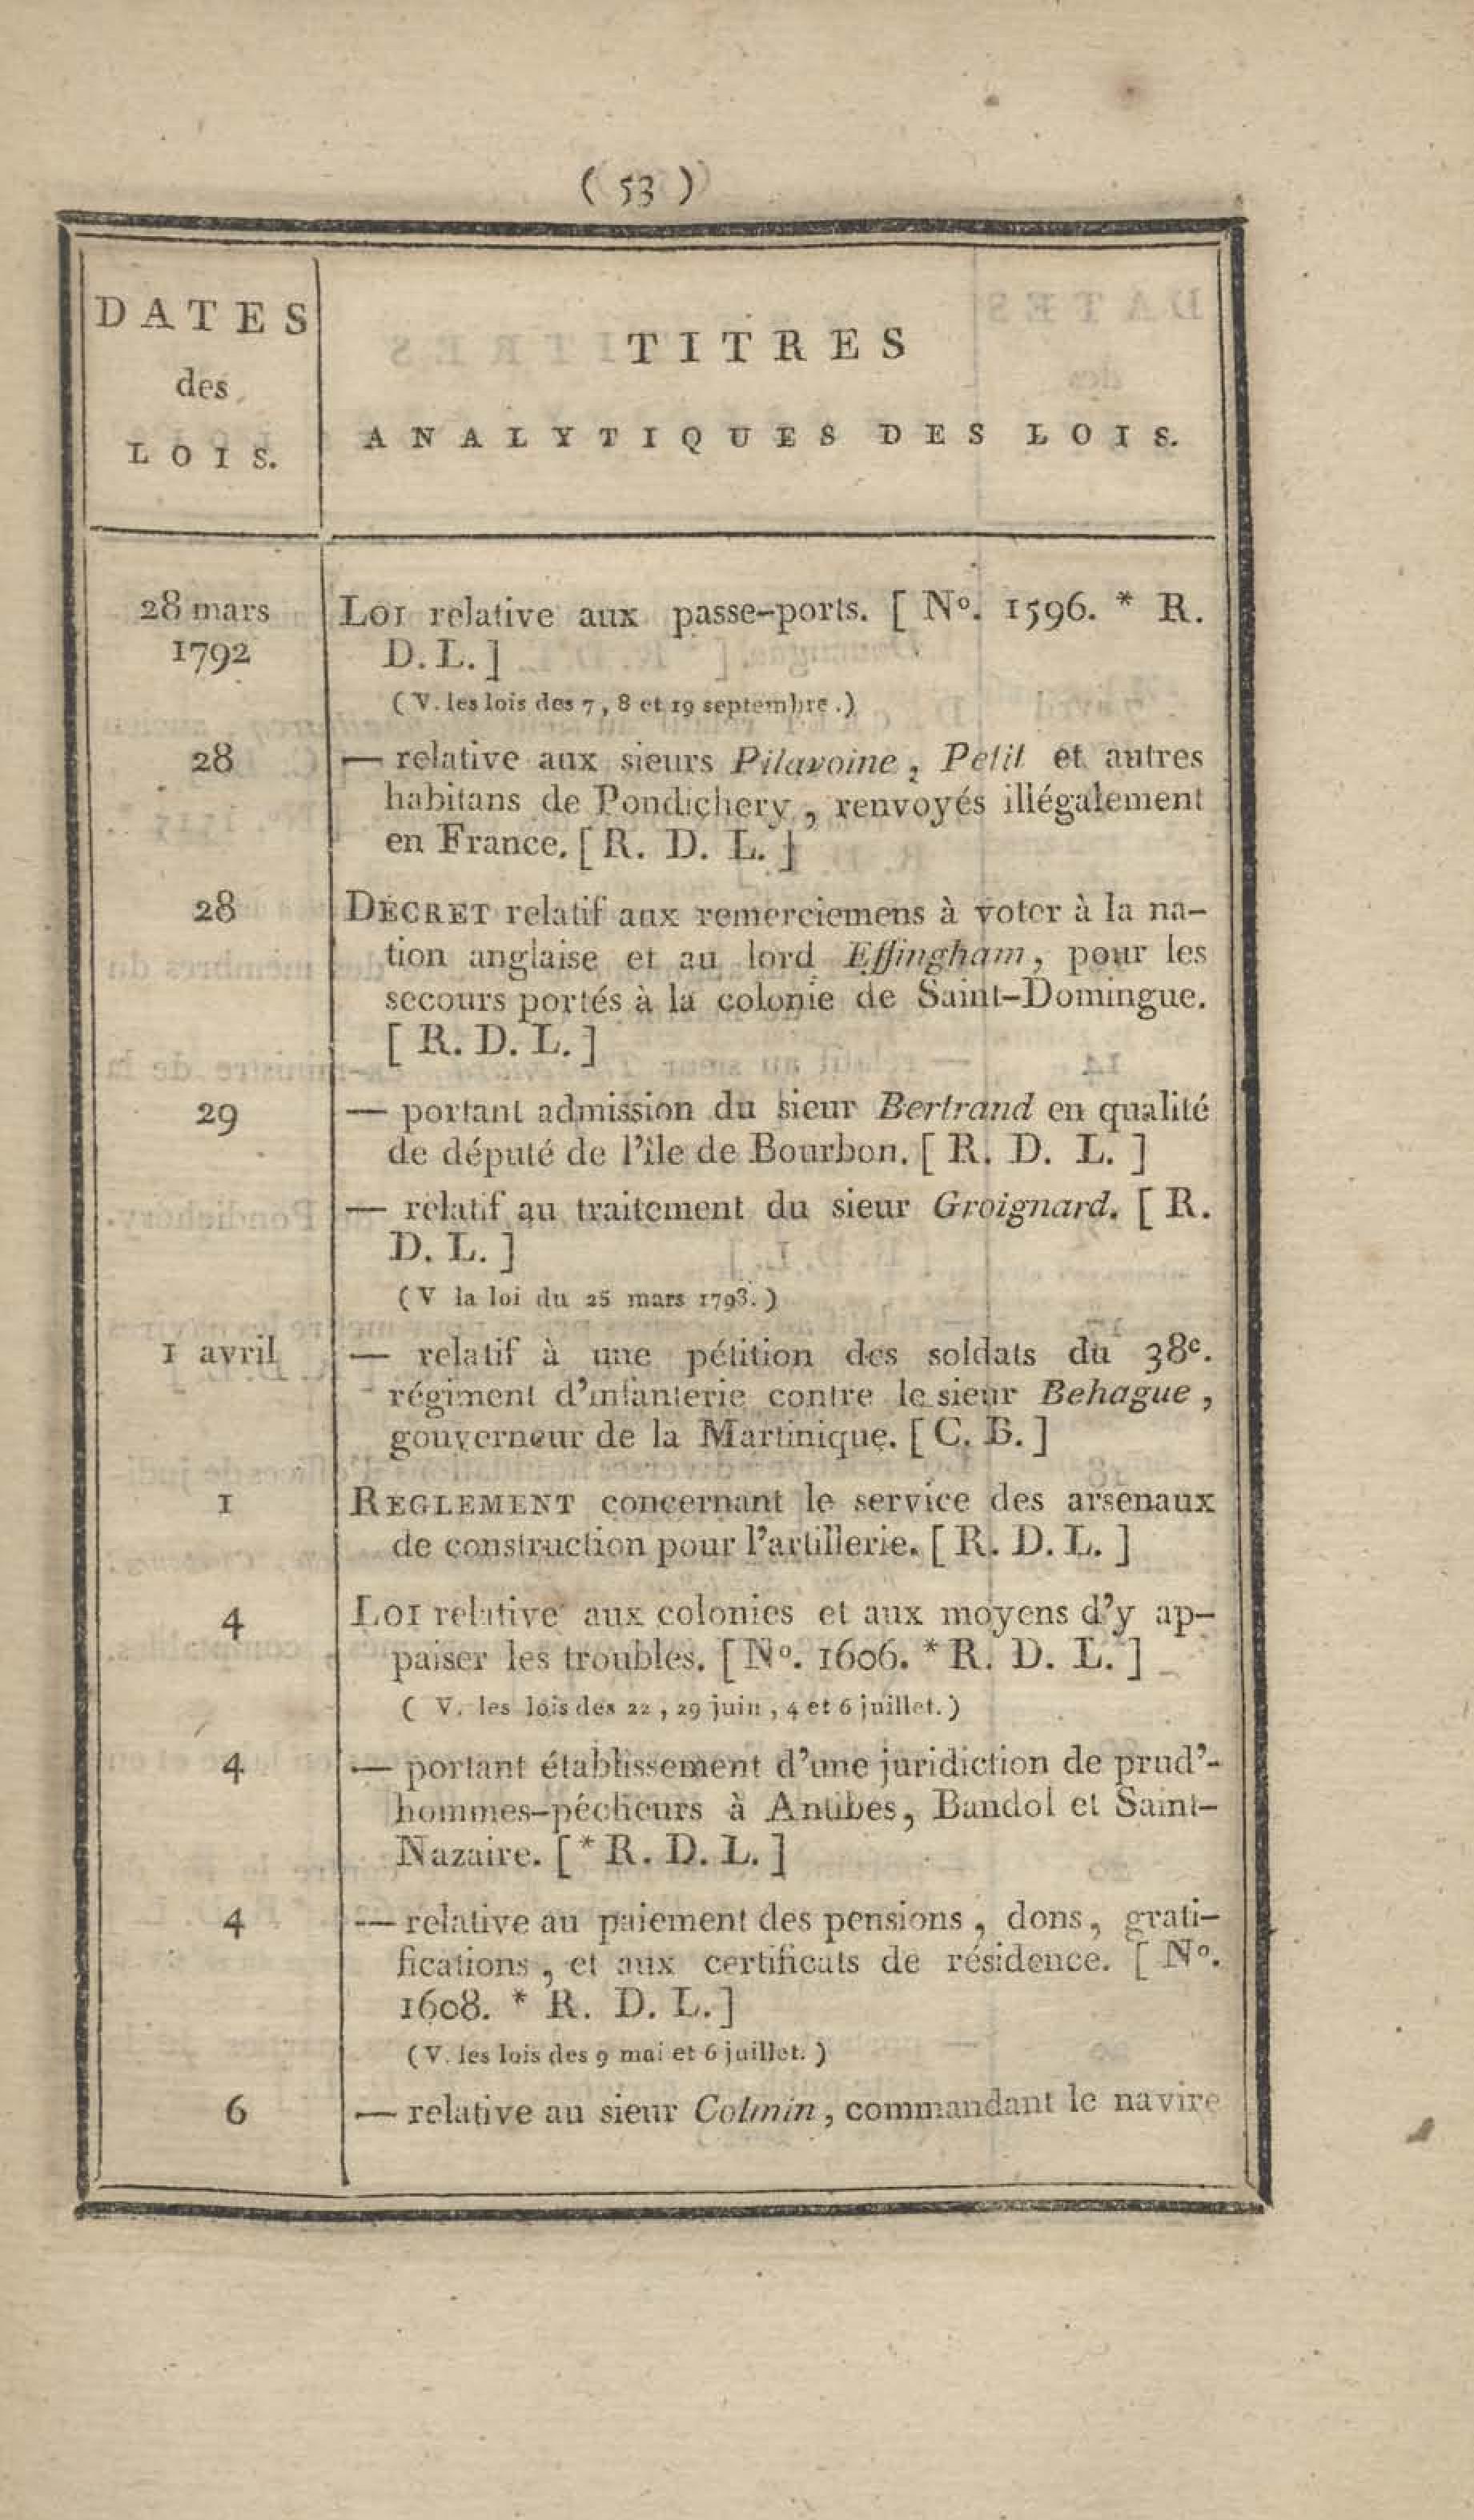 ( 53 )
DATES
des
LOIS.
TITRES
ANALYTIQUES DES LOIS.
28 mars
1792
LOI relative aux passe-ports. [ N°. 1596. * R.
D. L. ]
( V. les lois des 7, 8 et 19 septembre. )
28
— relative aux sieurs Pilavoine, Petit et autres
habitans de Pondichery, renvoyés illégalement
en France. [ R. D. L. ]
28
DÉCRET relatif aux remerciemens à voter à la na-
tion anglaise et au lord Effingham, pour les
secours portés à la colonie de Saint-Domingue.
[ R. D. L. ]
29
— portant admission du sieur Bertrand en qualité
de député de l'île de Bourbon. [ R. D. L. ]
— relatif au traitement du sieur Groignard. [ R.
D. L. ]
( V la loi du 25 mars 1793. )
1 avril
— relatif à une pétition des soldats du 38e.
régiment d'infanterie contre le sieur Behague,
gouverneur de la Martinique. [ C. B. ]
1
REGLEMENT concernant le service des arsenaux
de construction pour l'artillerie. [ R. D. L. ]
4
LOI relative aux colonies et aux moyens d'y ap-
paiser les troubles. [ N°. 1606. * R. D. L. ]
( V. les lois des 22, 29 juin, 4 et 6 juillet. )
4
— portant établissement d'une juridiction de prud'-
hommes-pécheurs à Antibes, Bandol et Saint-
Nazaire. [ * R. D. L. ]
4
— relative au paiement des pensions, dons, grati-
fications, et aux certificats de résidence. [ N°.
1608. * R. D. L. ]
( V. les lois des 9 mai et 6 juillet. )
6
— relative au sieur Colmin, commandant le navire